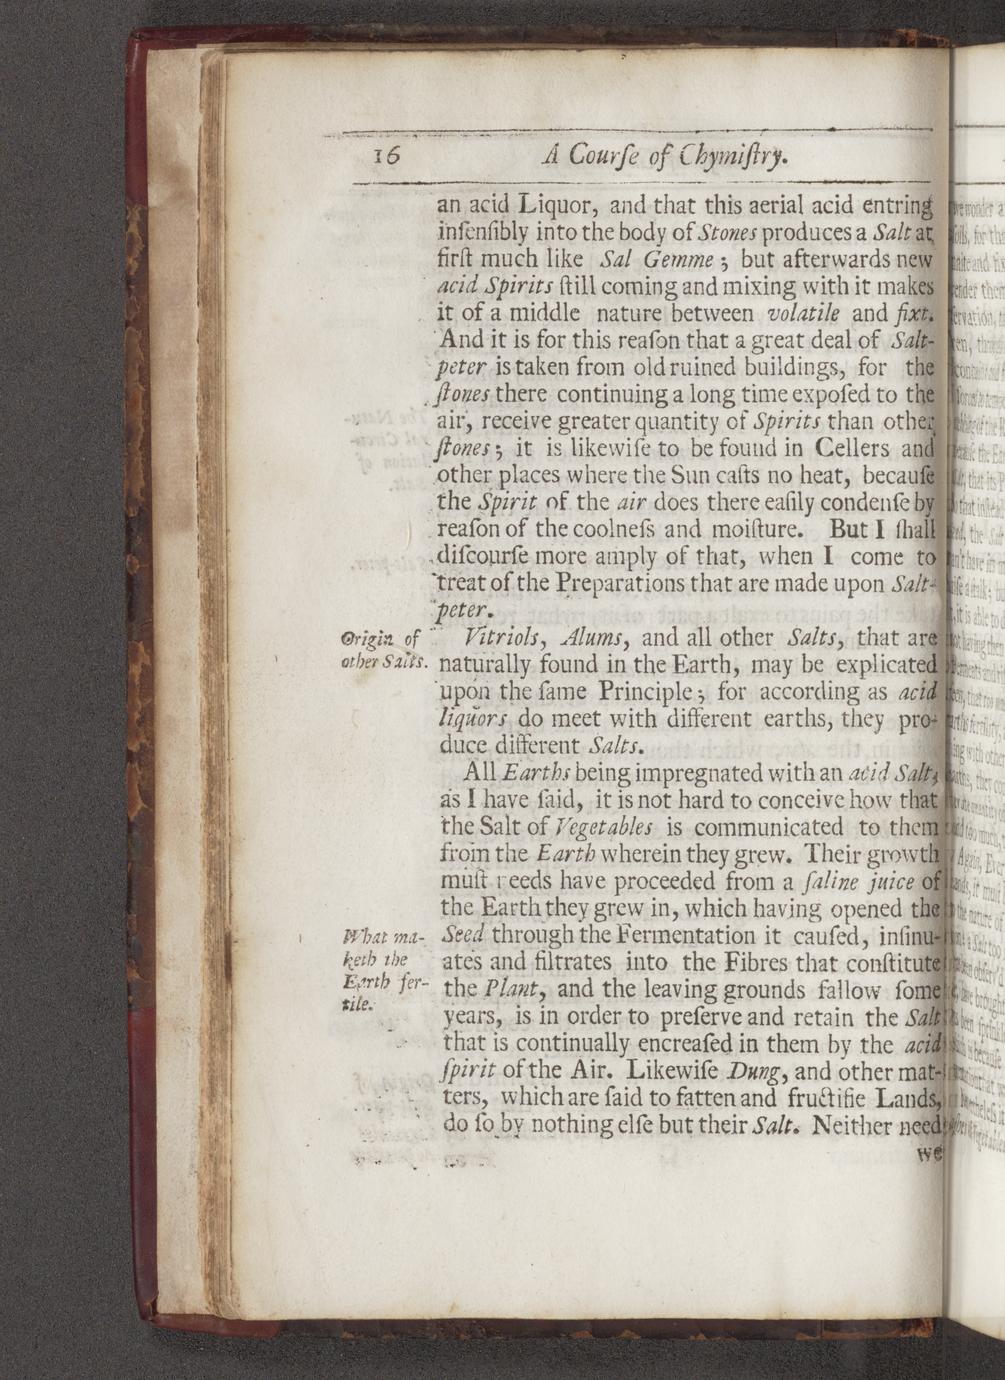 16
A Courſe of Chymiſtry.
an acid Liquor, and that this aerial acid entring
inſenſibly into the body of Stones produces a Salt at
firſt much like Sal Gemme; but afterwards new
acid Spirits ſtill coming and mixing with it makes
it of a middle nature between volatile and fixt.
And it is for this reaſon that a great deal of Salt-
peter is taken from old ruined buildings, for the
ſtones there continuing a long time expoſed to the
air, receive greater quantity of Spirits than other
ſtones; it is likewiſe to be found in Cellers and
other places where the Sun caſts no heat, becauſe
the Spirit of the air does there eaſily condenſe by
reaſon of the coolneſs and moiſture. But I ſhall
diſcourſe more amply of that, when I come to
treat of the Preparations that are made upon Salt-
peter.
Origin of
other Salts.
Vitriols, Alums, and all other Salts, that are
naturally found in the Earth, may be explicated
upon the ſame Principle; for according as acid
liquors do meet with different earths, they pro-
duce different Salts.
All Earths being impregnated with an acid Salt,
as I have ſaid, it is not hard to conceive how that
the Salt of Vegetables is communicated to them
from the Earth wherein they grew. Their growth
muſt needs have proceeded from a ſaline juice of
the Earth they grew in, which having opened the
What ma-
keth the
Earth fer-
tile.
Seed through the Fermentation it cauſed, inſinu-
ates and filtrates into the Fibres that conſtitute
the Plant, and the leaving grounds fallow ſome
years, is in order to preſerve and retain the Salt
that is continually encreaſed in them by the acid
ſpirit of the Air. Likewiſe Dung, and other mat-
ters, which are ſaid to fatten and fructifie Lands,
do ſo by nothing elſe but their Salt. Neither need
we